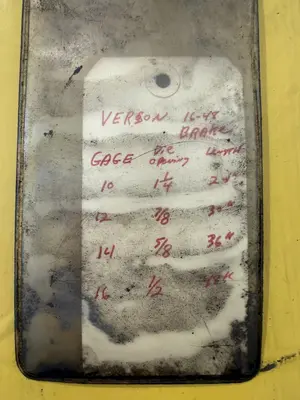 VERSON 16-48
BRAKE
GAGE Die Opening Length
10 1 1/4
12 7/8
14 5/8 36"
16 1/2